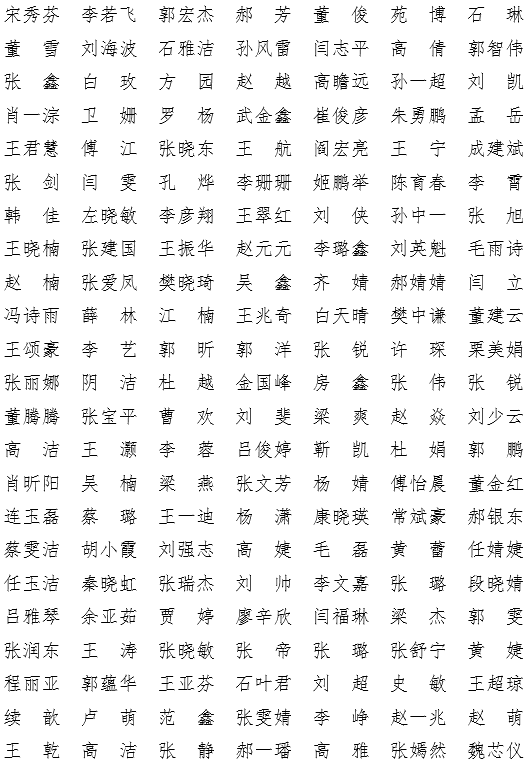 宋秀芬 李若飞 郭宏杰 郝芳 董俊 苑博 石琳
董雪 刘海波 石雅洁 孙风雷 闫志平 高倩 郭智伟
张鑫 白玫 方园 赵越 高瞻远 孙一超 刘凯
肖一淙 卫姗 罗杨 武金鑫 崔俊彦 朱勇鹏 孟岳
王君慧 傅江 张晓东 王航 阎宏亮 王宁 成建斌
张剑 闫雯 孔烨 李珊珊 姬鹏举 陈育春 李霄
韩佳 左晓敏 李彦翔 王翠红 刘侠 孙中一 张旭
王晓楠 张建国 王振华 赵元元 李璐鑫 刘英魁 毛雨诗
赵楠 张爱凤 樊晓琦 吴鑫 齐婧 郝婧婧 闫立
冯诗雨 薛林 江楠 王兆奇 白天晴 樊中谦 董建云
王颂豪 李艺 郭昕 郭洋 张锐 许琛 栗美娟
张丽娜 阴洁 杜越 金国峰 房鑫 张伟 张锐
董腾腾 张宝平 曹欢 刘斐 梁爽 赵焱 刘少云
高洁 王灏 李蓉 吕俊婷 靳凯 杜娟 郭鹏
肖昕阳 吴楠 梁燕 张文芳 杨婧 傅怡晨 董金红
连玉磊 蔡璐 王一迪 杨潇 康晓瑛 常斌豪 郝银东
蔡雯洁 胡小霞 刘强志 高婕 毛磊 黄蕾 任婧婕
任玉洁 秦晓虹 张瑞杰 刘帅 李文嘉 张璐 段晓婧
吕雅琴 余亚茹 贾婷 廖辛欣 闫福琳 梁杰 郭雯
张润东 王涛 张晓敏 张帝 张璐 张舒宁 黄婕
程丽亚 郭蕴华 王亚芬 石叶君 刘超 史敏 王超琼
续歆 卢萌 范鑫 张雯婧 李峥 赵一兆 赵萌
王乾 高洁 张静 郝一璠 高雅 张嫣然 魏芯仪